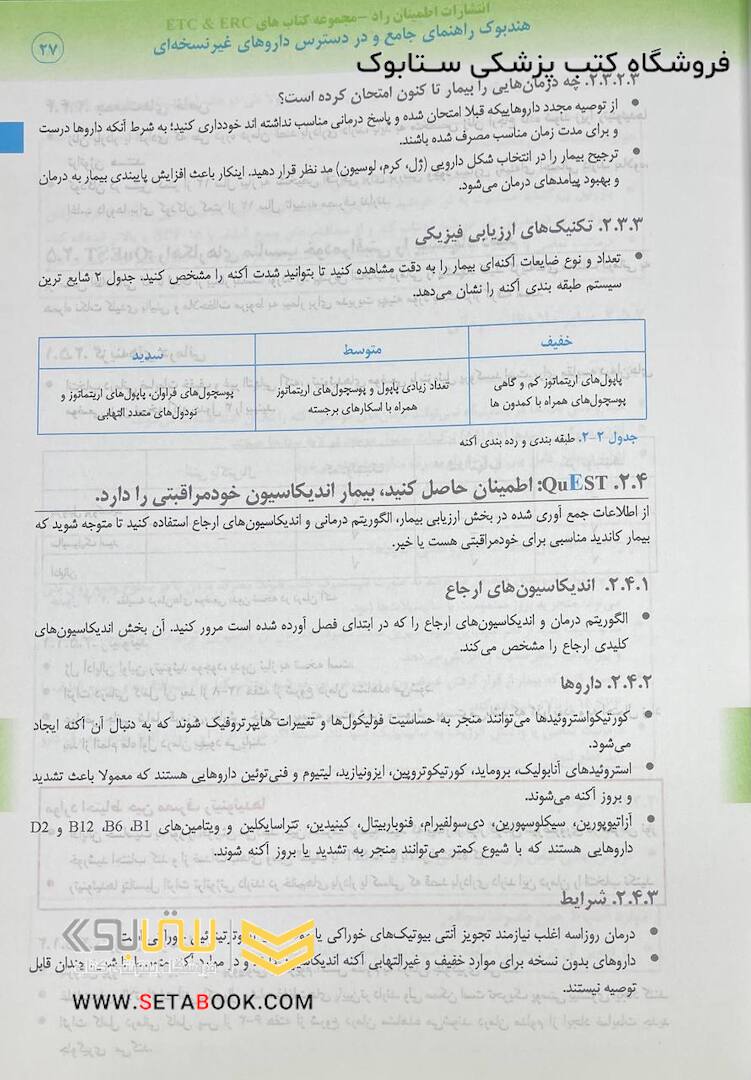 انتشارات اطمینان راد -مجموعه کتاب های ETC & ERC
هندبوک راهنمای جامع و در دسترس داروهای غیرنسخه‌ای
۲۷
فروشگاه کتب پزشکی ستابوک
۲.۳.۲.۳. چه درمان‌هایی را بیمار تا کنون امتحان کرده است؟
● از توصیه مجدد داروهاییکه قبلا امتحان شده و پاسخ درمانی مناسب نداشته اند خودداری کنید؛ به شرط آنکه داروها درست
و برای مدت زمان مناسب مصرف شده باشند.
● ترجیح بیمار را در انتخاب شکل دارویی (ژل، کرم، لوسیون) مد نظر قرار دهید. اینکار باعث افزایش پایبندی بیمار به درمان
و بهبود پیامدهای درمان می‌شود.
۲.۳.۳. تکنیک‌های ارزیابی فیزیکی
● تعداد و نوع ضایعات آکنه‌ای بیمار را به دقت مشاهده کنید تا بتوانید شدت آکنه را مشخص کنید. جدول ۲ شایع ترین
سیستم طبقه بندی آکنه را نشان می‌دهد.
خفیف متوسط شدید
پاپول‌های اریتماتوز کم و گاهی تعداد زیادی پاپول و پوسچول‌های اریتماتوز پوسچول‌های فراوان، پاپول‌های اریتماتوز و
پوسچول‌های همراه با کمدون ها همراه با اسکارهای برجسته نودول‌های متعدد التهابی
جدول ۲-۲. طبقه بندی و رده بندی آکنه
۲.۴. QuEST: اطمینان حاصل کنید، بیمار اندیکاسیون خودمراقبتی را دارد.
از اطلاعات جمع آوری شده در بخش ارزیابی بیمار، الگوریتم درمانی و اندیکاسیون‌های ارجاع استفاده کنید تا متوجه شوید که
بیمار کاندید مناسبی برای خودمراقبتی هست یا خیر.
۲.۴.۱. اندیکاسیون‌های ارجاع
● الگوریتم درمان و اندیکاسیون‌های ارجاع را که در ابتدای فصل آورده شده است مرور کنید. آن بخش اندیکاسیون‌های
کلیدی ارجاع را مشخص می‌کند.
۲.۴.۲. داروها
● کورتیکواستروئیدها می‌توانند منجر به حساسیت فولیکول‌ها و تغییرات هایپرتروفیک شوند که به دنبال آن آکنه ایجاد
می‌شود.
● استروئیدهای آنابولیک، بروماید، کورتیکوتروپین، ایزونیازید، لیتیوم و فنی‌توئین داروهایی هستند که معمولا باعث تشدید
و بروز آکنه می‌شوند.
● آزاتیوپورین، سیکلوسپورین، دی‌سولفیرام، فنوباربیتال، کینیدین، تتراسایکلین و ویتامین‌های B1، B6، B12 و D2
داروهایی هستند که با شیوع کمتر می‌توانند منجر به تشدید یا بروز آکنه شوند.
۲.۴.۳. شرایط
● درمان روزاسه اغلب نیازمند تجویز آنتی بیوتیک‌های خوراکی یا خوراکی است
● داروهای بدون نسخه برای موارد خفیف و غیرالتهابی آکنه اندیکاسیون و در موارد چندان قابل
توصیه نیستند.
ستابوک
WWW.SETABOOK.COM